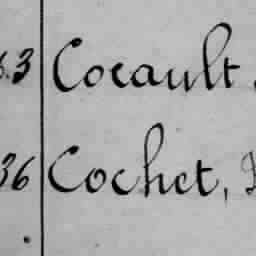 3 Cocault
36 Cochet,